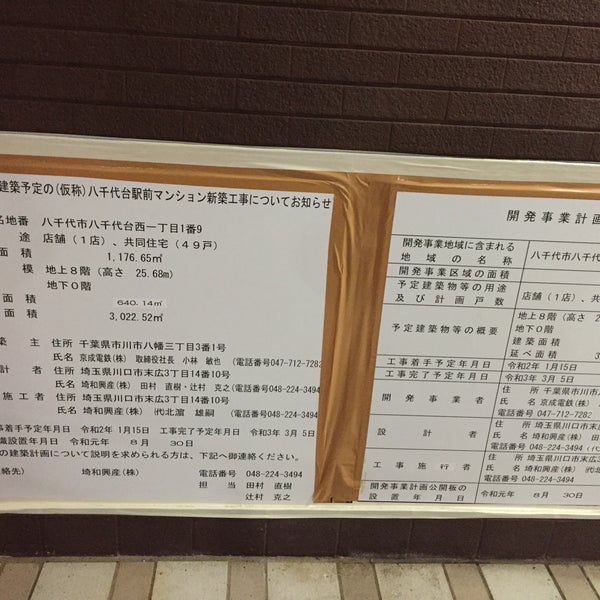 建築予定の(仮称)八千代台駅前マンション新築工事についてお知らせ
名地番 八千代市八千代台西一丁目1番9
途 店舗(1店)、共同住宅(49戸)
面積 1,176.65㎡
模 地上8階(高さ 25.68m)
地下0階
面積 640.14㎡
面積 3,022.52㎡
築主 住所 千葉県市川市八幡三丁目3番1号
氏名 京成電鉄(株) 取締役社長 小林 敏也 (電話番号047-712-7282
計者 住所 埼玉県川口市末広3丁目14番10号
氏名 埼和興産(株) 田村 直樹・辻村 克之(電話番号048-224-3494
施工者 住所 埼玉県川口市末広3丁目14番10号
氏名 埼和興産(株) (代北濵 雄嗣 (電話番号048-224-3494
着手予定年月日 令和2年 1月15日 工事完了予定年月日 令和3年 3月 5日
識設置年月日 令和元年 8月 30日
の建築計画について説明を求められる方は、下記へ御連絡ください。
絡先) 埼和興産(株) 電話番号 048-224-3494
担当 田村 直樹
辻村 克之
開発事業計画
開発事業地域に含まれる地域の名称 八千代市八千代
開発事業区域の面積
予定建築物等の用途及び計画戸数 店舗(1店)、共
予定建築物等の概要 地上8階(高さ 2
地下0階
建築面積
延べ面積 3
工事着手予定年月日 令和2年 1月15日
工事完了予定年月日 令和3年 3月 5日
開発事業者 住所 千葉県市川市
氏名 京成電鉄(株)
電話番号047-712-7282
設計者 住所 埼玉県川口市末広3
氏名 埼和興産(株) 田
電話番号 048-224-3494(代
工事施行者 住所 埼玉県川口市末広3
氏名 埼和興産(株) (代北
電話番号 048-224-3494
開発事業計画公開板の設置年月日 令和元年 8月 30日